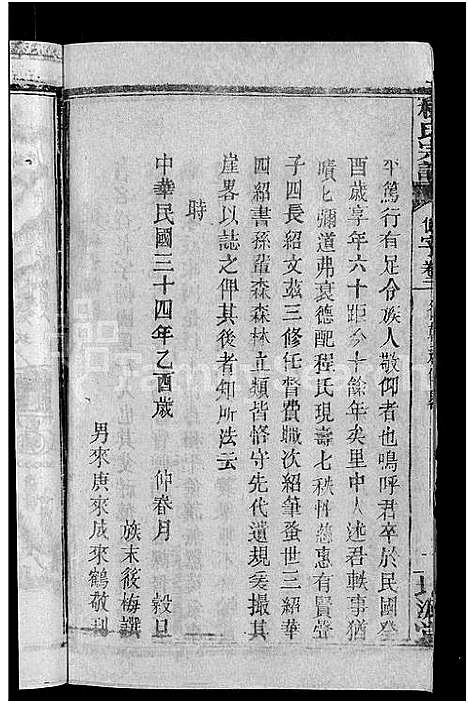 平篤行有足令族人敬仰者也嗚呼君卒於民國癸
酉歲享年六十距今十餘年矣里中人述君軼事猶
嘖匕彌道弗衰德配程氏現壽七秩性慈惠有賢聲
子四長紹文茲三修任督費職次紹筆蚤世三紹華
四紹書孫輩森森林立類皆恪守先代遺規爰撮其
崖畧以誌之俾其後者知所法云
時
中華民國三十四年乙酉歲 仲春月 穀旦
族末後梅譔
男來庚來咸來鶴敬刋
氏宗譜